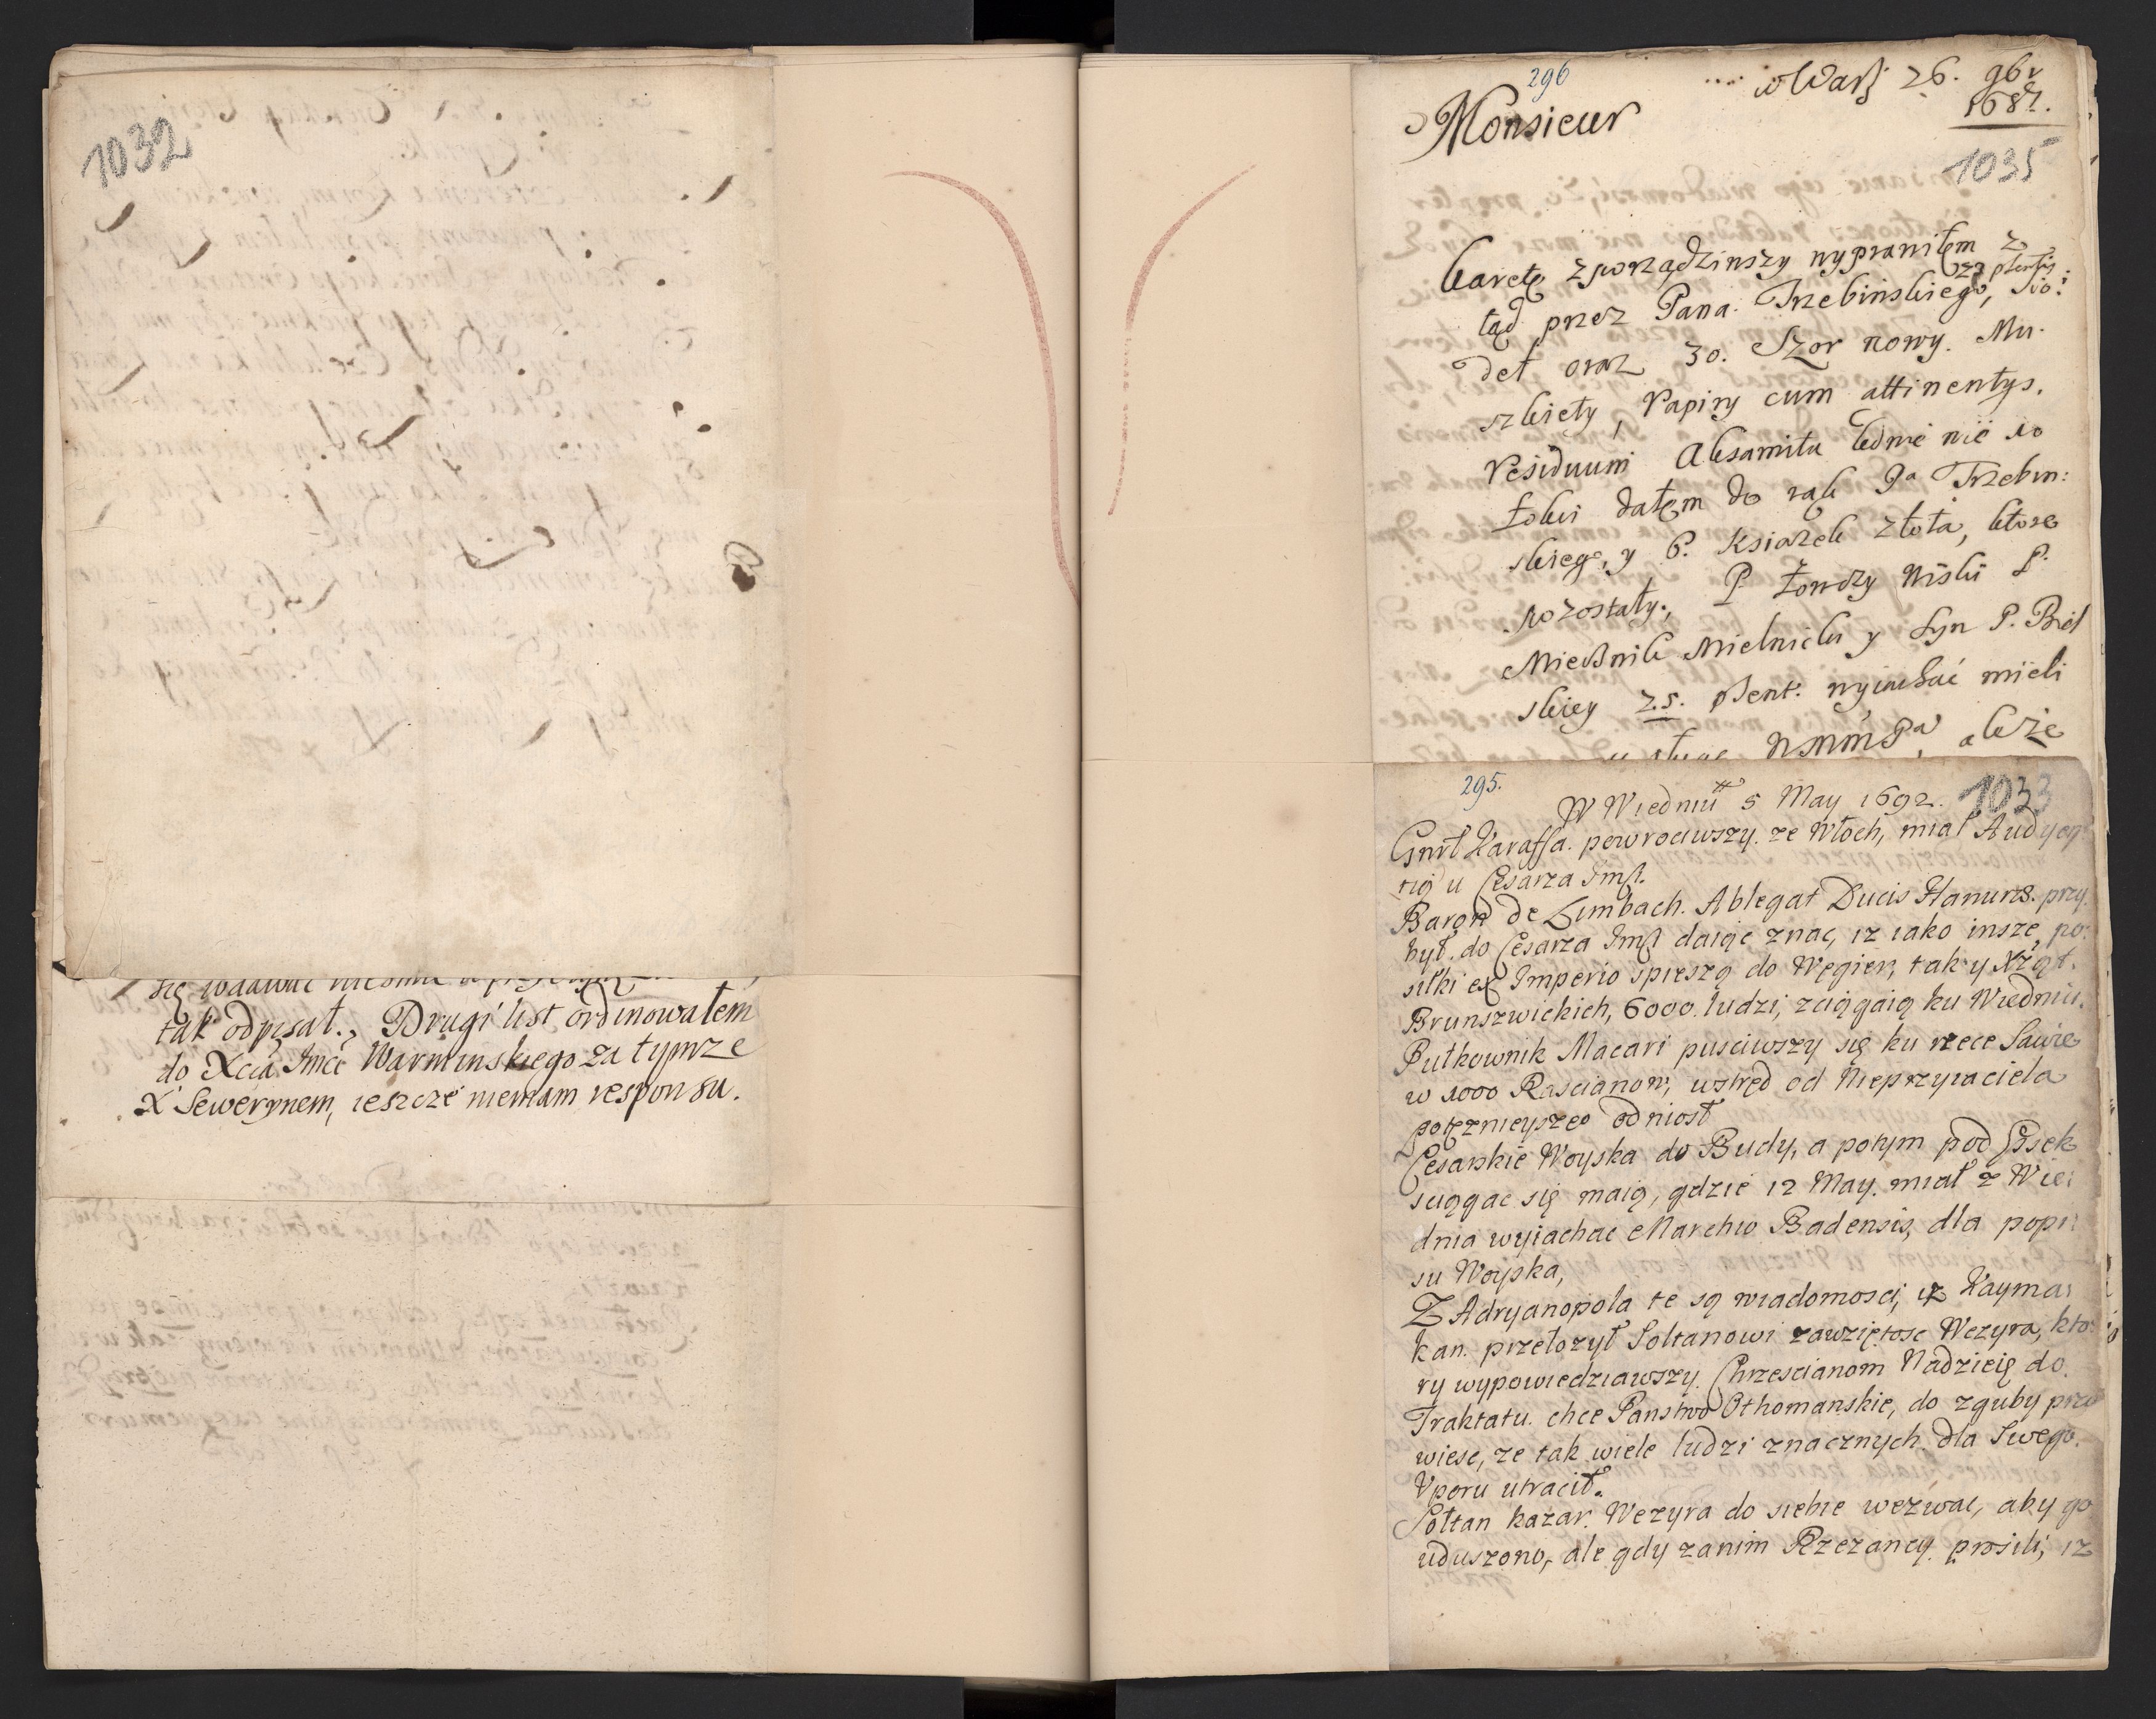 1032
tak odpisał., Drugi list ordinowałem
do Xcia Jmci Warminskiego za tymze
X Sewerynem, ieszcze niemam responsu.
296
w Warß 26. 9br
1687.
Monsieur
1035
karetę zporządziwszy wyprawiłem z
tąd przez Pana Trzebińskiego,
det oraz 30. Szor nowy. Mu-
szkiety, Rapiry cum attinentys.
Residuum Aksamitu ledwie nie 10
łokci dałem do rąk Pa Trzebin:
skiego, y 6. Ksiazek złota, ktore
pozostały.
Mielnicki y Syn P. Biel
skiey 25. wyiachać mieli
295.
W Wiedniu 5 May 1692.
1033
Gnrł Karaffa. powrociwszy. ze Włoch, miał Audyen
tią u Cesarza Jmsi.
Baron de Limbach. Ablegat Ducis Hanuws. przy
był. do Cesarza Jmsi daiąc znac, iz iako insze, po:
siłki ex Imperio spieszą do Węgier, tak y Xżąt.
Brunszwickich, 6000. ludzi, zaiągaią ku Wiedniu.
Pułkownik Macari pusciwszy się ku rzece Sawie
w 1000 Rascianow, wstręd od Nieprzyiaciela
potęznieyszeo odniosł
Cesarskie Woyska do Budy, a potym pod Essek
sciągac się maią, gdzie 12 May. miał z Wie:
dnia wyiachac Marchio Badensis, dla popi
su Woyska,
Z Adryanopola te są wiadomosci, iz Kayma:
kan. przełozył Sołtanowi zawziętosc Wezyra, kto:
ry wypowiedziawszy. Chrzescianom Nadzieię do.
Traktatu. chce Panstwo Othomanskie, do zguby przy
wiesc, ze tak wiele ludzi znacznych. dla Swego.
Vporu utracił.
Sołtan kazał. Wezyra do siebie wezwac, aby go
uduszono, ale gdy zanim Rzezancy. prosili, iz